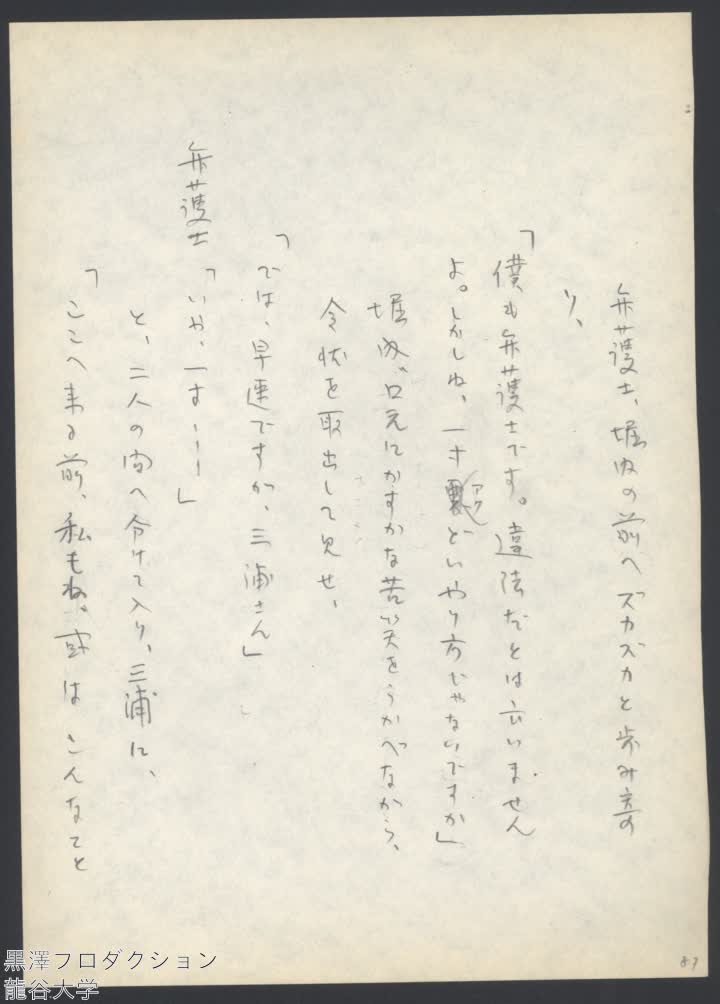 弁護士、堀内の前へズカズカと歩み寄
り、
「僕も弁護士です。違法だとは云いません
よ。しかしね、一寸 アク どいやり方じゃないですか」
堀内、口元にかすかな苦笑をうかべながら、
令状を取出して見せ、
「では、早速ですが、三浦さん」
弁護士「いや、一寸――」
と、二人の間へ分けて入り、三浦に、
「ここへ来る前、私もね、或はこんなこと
87
黒澤プロダクション
龍谷大学